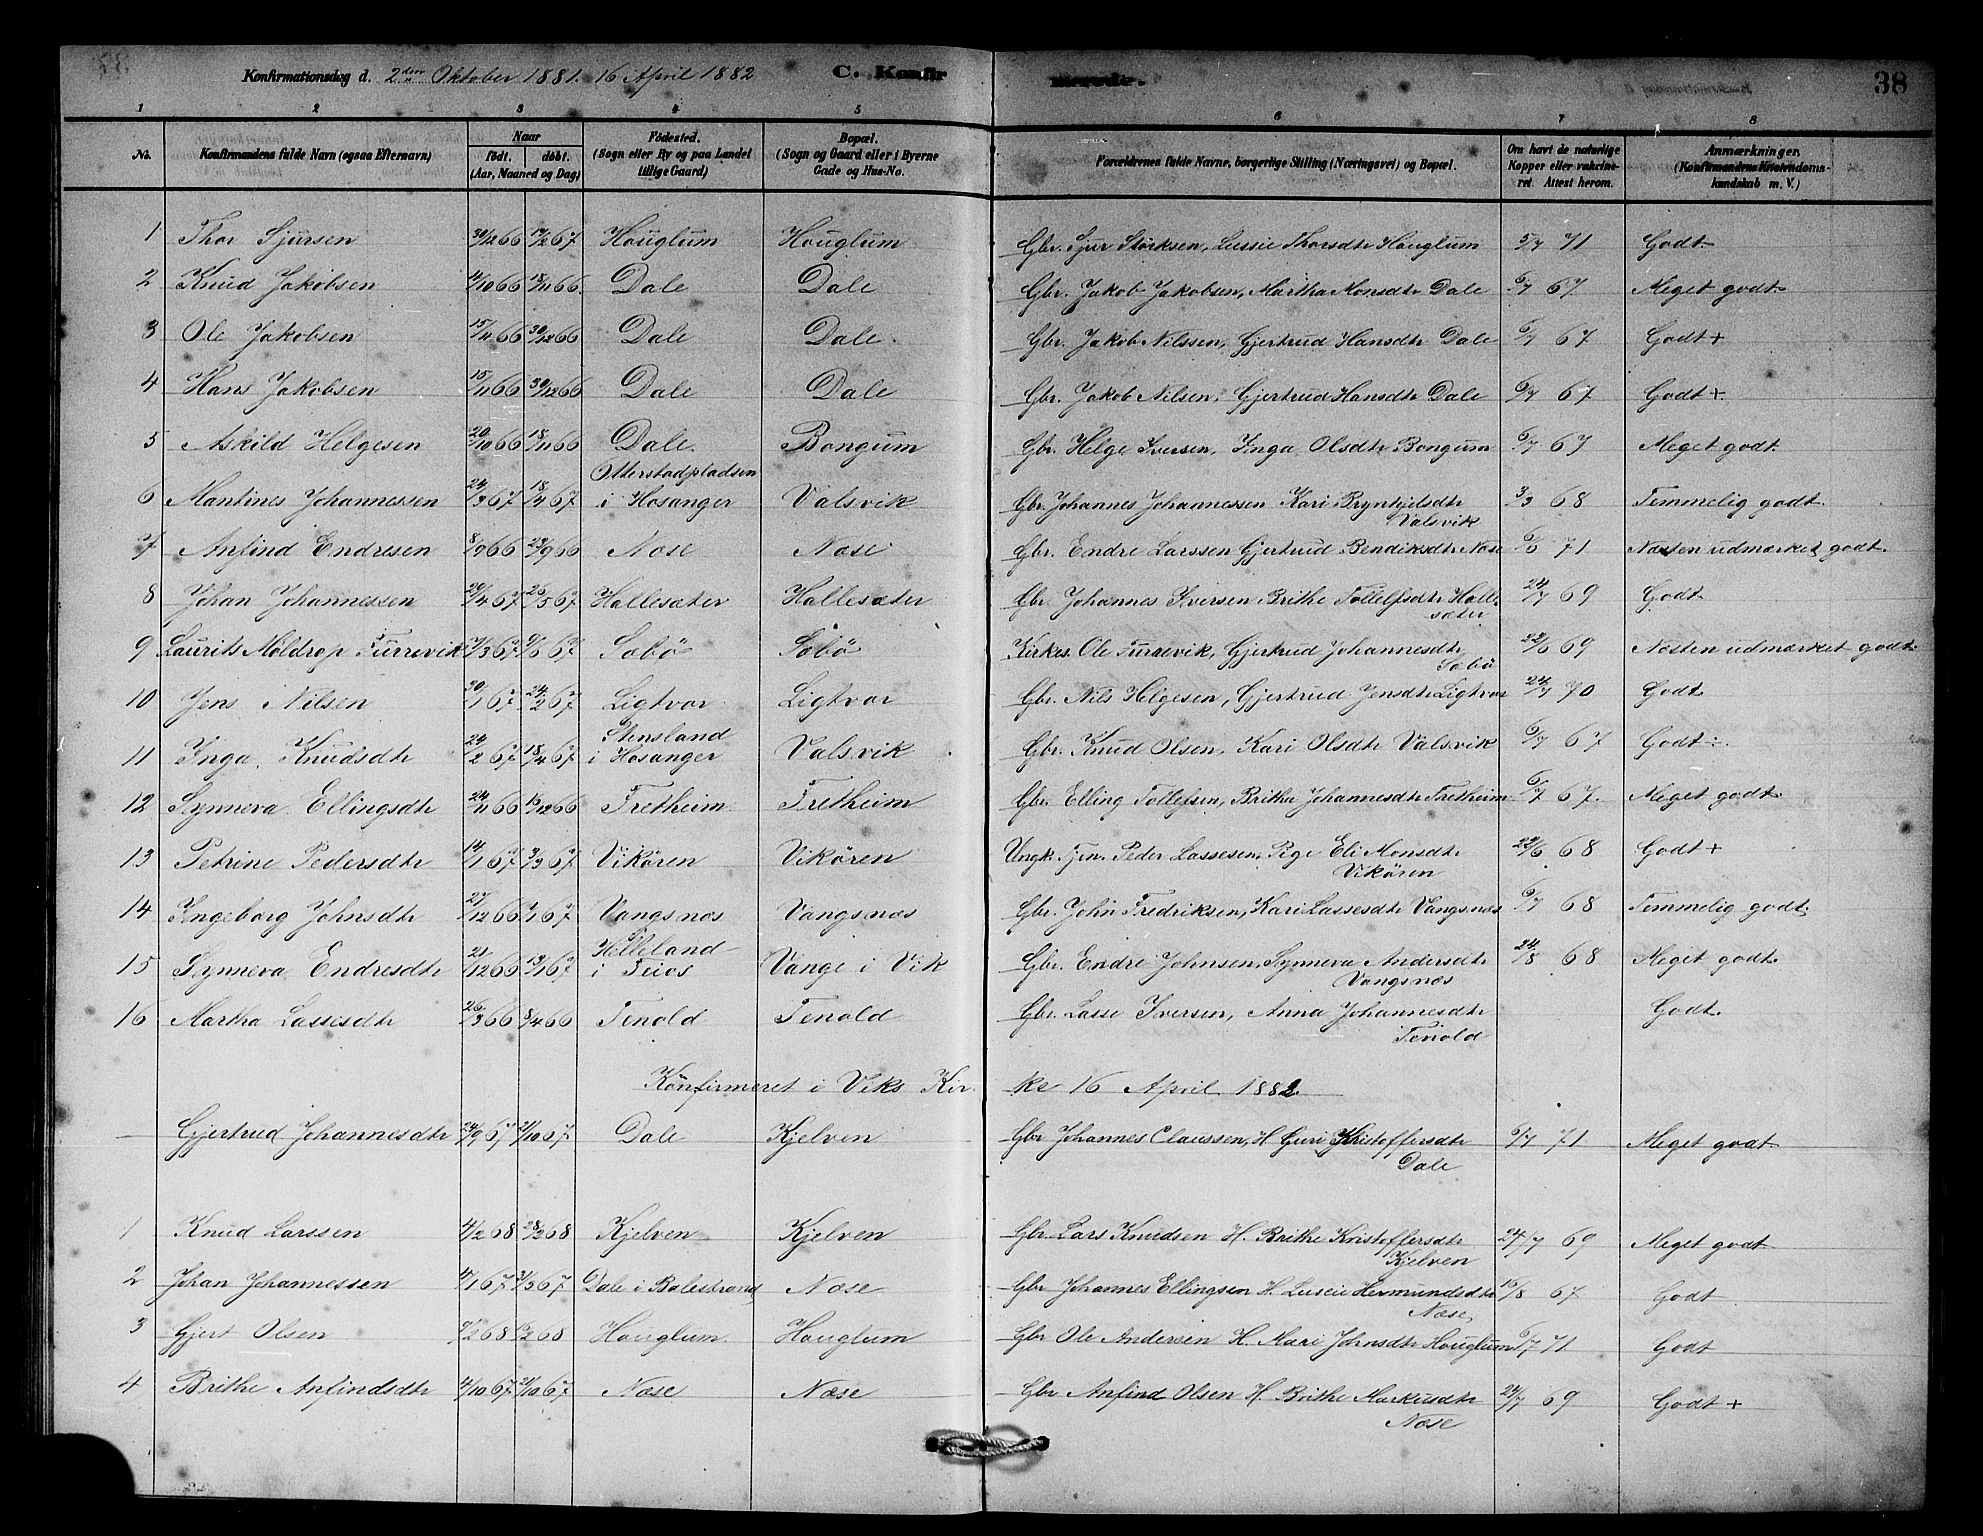 Konfirmationsdag d. 2den Oktober 1881. 16 April 1882 C. Konfirmerede. 38
1 2 3 4 5 6 7 8
No. Konfirmandens fulde Navn (ogsaa Efternavn) Naar født. døbt. (Aar, Maaned og Dag) Fødested. (Sogn eller By og paa Landet tillige Gaard) Bopæl. (Sogn og Gaard eller i Byerne Gade og Hus-No. Forældrenes fulde Navne, borgerlige Stilling (Næringsvei) og Bopæl. Om havt de naturlige Kopper eller vakcineret. Attest herom. Anmærkninger, (Konfirmandens Kristendomskundskab m. V.)
1 Thor Sjursen 30/12 66 17/2 67 Houglum Houglum Gbr. Sjur Størksen, Lussie Thorsdtr Houglum 5/7 71 Godt
2 Knud Jakobsen 4/10 66 18/11 66. Dale Dale Gbr. Jakob Jakobsen, Martha Monsdtr Dale 6/7 67 Meget godt
3 Ole Jakobsen 15/11 66 30/12 66 Dale Dale. Gbr. Jakob Nilssen, Gjertrud Hansdtr Dale 6/7 67 Godt +
4 Hans Jakobsen 15/11 66 30/12 66 Dale Dale Gbr. Jakob Nilsen, Gjertrud Hansdtr Dale 6/7 67 Godt +
5 Askild Helgesen 20/10 66 18/11 66 Dale. Bongum Gbr. Helge Iversen, Inga Olsdtr Bongum 6/7 67 Meget godt.
6 Mantines Johannessen 24/3 67 18/4 67 Otterstadpladsen i Hosanger Valsvik Gbr. Johannes Johannessen Kari Brynhjilsdtr Valsvik 3/3 68 Temmelig godt.
7 Anfind Endresen 8/9 66 23/9 66 Næse Næse Gbr. Endre Larssen Gjertrud Bendiksdtr Næse 71 Næsten udmærket godt.
8 Johan Johannessen 20/4 67 26/5 67 Hallesæter Hallesæter Gbr. Johannes Iversen, Brithe Tollefsdtr Hallesæter 24/7 69 Godt
9 Laurits Moldrop Turrevik 67 67 Sæbö Sæbö Kirkes. Ole Turrevik, Gjertrud Johannesdtr Sæbö 22/6 69 Næsten udmærket godt.
10 Jens Nilsen 30/1 67 24/2 67 Ligtvor Ligtvor Gbr. Nils Helgesen, Gjertrud Jensdtr Ligtvor 24/7 70 Godt
11 Inga Knudsdtr 24/2 67 18/4 67 Stensland i Hosanger Valsvik Gbr. Knud Olsen, Kari Olsdtr Valsvik 6/7 67 Godt ÷.
12 Synneva Ellingsdtr 24/11 66 15/12 66 Fretheim Fretheim Gbr. Elling Tollefsen, Brithe Johannesdtr Fretheim 6/7 67. Meget godt
13 Petrine Pedersdtr 14/1 67 3/3 67 Vikören Vikören Ungk. Tjen. Peder Lassesen, Pige Eli Monsdtr Vikören 22/6 68 Godt +
14 Ingeborg Johnsdtr 27/12 66 1/1 67 Vangsnæs Vangsnæs Gbr. John Fredriksen, Kari Lassesdtr Vangsnæs 6/7 68 Temmelig godt.
15 Synneva Endresdtr 21/12 66 13/1 67 Helleland i Fiios Vange i Vik Gbr. Endre Johnsen, Synneva Andersdtr Vangsnæs 24/8 68 Meget godt.
16 Martha Lassesdtr 26/3 66 8/4 66 Tenold Tenold Gbr. Lasse Iversen, Anna Johannesdtr Tenold Godt.
Konfirmeret i Viks Kirke 16 April 1882
— Gjertrud Johannesdtr 24/9 67 /10 67. Dale Kjelven Gbr Johannes Claussen, H. Guri Kristoffersdtr Dale 6/7 71. Meget godt
1 Knud Larssen 4/2 68 28/2 68 Kjelven Kjelven Gbr. Lars Knudsen H. Brithe Kristoffersdtr Kjelven 24/7 69 Meget godt
2 Johan Johannessen 4/1 67 3/3 67 Dale i Balestrand Næse Gbr Johannes Ellingsen H. Luseie Hermundsdtr Næse 15/8 67 Godt
3 Gjert Olsen 7/2 68 68 Houglum Houglum Gbr Ole Andersen H. Mari Johnsdtr Houglum 6/7 71 Godt
4 Brithe Anfindsdtr 4/10 67 /10 67 Næse Næse Gbr Anfind Olsen H. Brithe Markusdtr Næse 24/7 69 Godt +